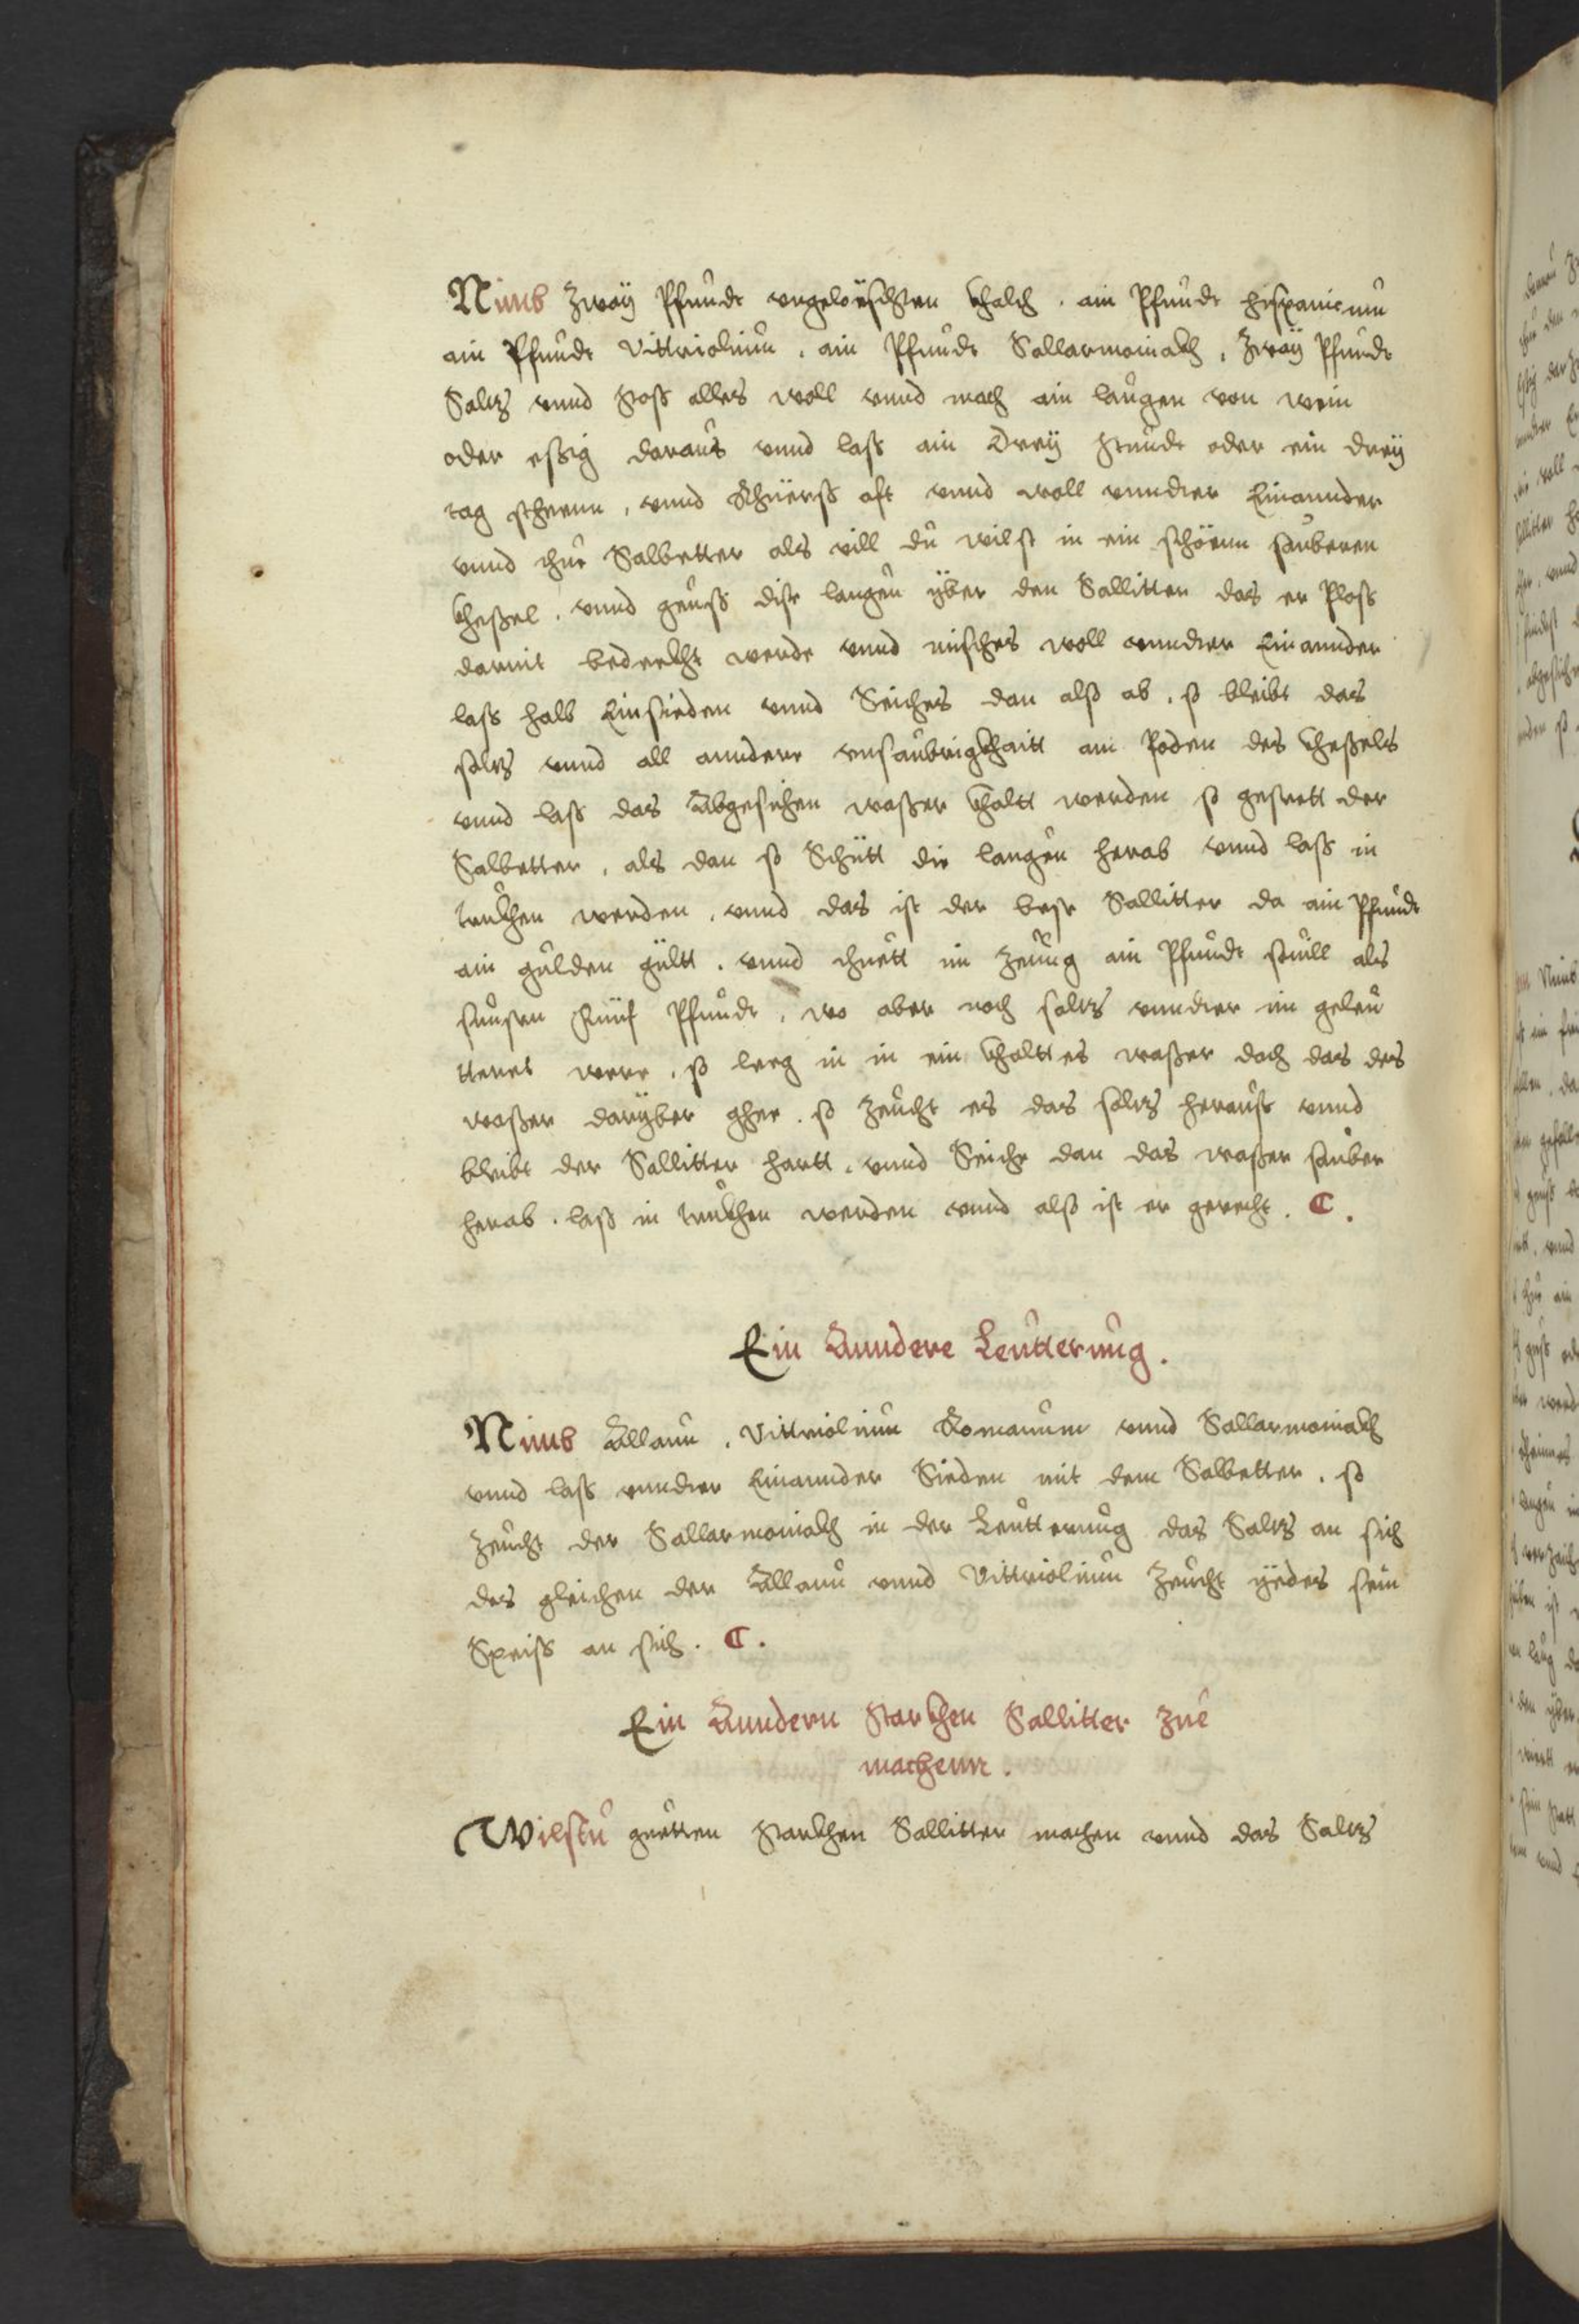 Nimb zwaÿ Pfundt vngeloëschten khalch . ain Pfundt hispanicum
ain Pfundt Vittriolum . ain Pfundt Sallarmoniakh . Zwaÿ Pfundt
Saltz vnnd stoß alles woll vnnd mach ain laugen von wein
oder eßig daraus vnnd lass ain Dreÿ stundt oder ein dreÿ
tag steenn , vnnd Rhüerß oft vnnd woll vnndter Einannder
vnnd thue Salbetter als vill du wilst in ein schöenn sauberen
kheßel . vnnd geuss dise laugen ÿber den Salliter das er Ploss
darmit bedeckht werde vnnd misches woll vnndter Einannder
lass halb Einsieden vnnd Seiches dan alß ab . so bleibt das
saltz vnnd all anndere vnsaubrigkhaitt am Poden des kheßels
vnnd lass das Abgesichen waßer khaltt werden so gestett der
Salbetter . als dan so Schütt die laugen herab vnnd lass in
trukhen werden . vnnd das ist der beste Sallitter da ain Pfundt
ain gulden giltt . vnnd thuett im zeüug ain Pfundt souill als
sunsten Fünf Pfundt . wo aber noch saltz vnndter im geleu
tteret were . so leeg in in ein khalttes waßer doch das des
waßer darÿber gehe . so zeucht es das saltz herauss vnnd
bleibt der Sallitter hartt . vnnd Seiche dan das waßer sauber
herab . lass in trukhen werden vnnd alß ist er gerecht . C .
Ein Anndere Leutterung .
Nimb Allaun . Vittriolum Romanum vnnd Sallarmoniakh
vnnd lass vnndter Einannder Sieden mit dem Salbetter . so
zeucht der Sallarmoniakh in der Leutterung das Saltz an sich
des gleichen der Allaun vnnd Vittriolum zeucht ÿedes sein
Speiss an sich . C .
Ein Anndern starkhen Sallitter zue
machenn .
Wilstu guetten starkhen Sallitter machen vnnd das Saltz